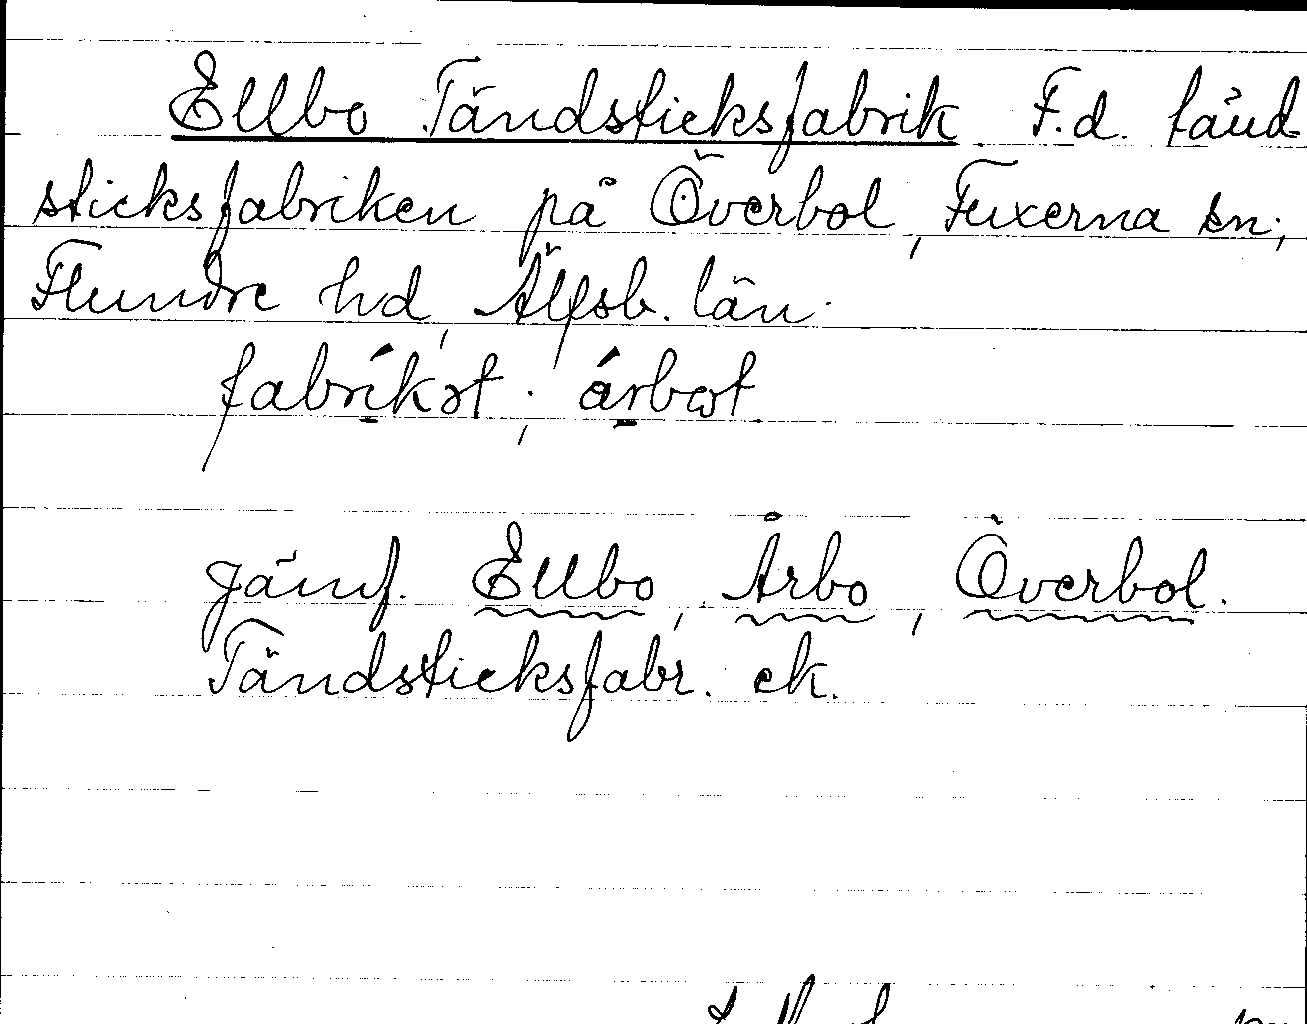 Ellbo Tändsticksfabrik F.d. tänd-
sticksfabriken på Överbol, Fuxerna sn,
Flundre hd, Älfsb. län.
jämf. Ellbo, Årbo, Överbol.
Tändsticksfabr. ek.